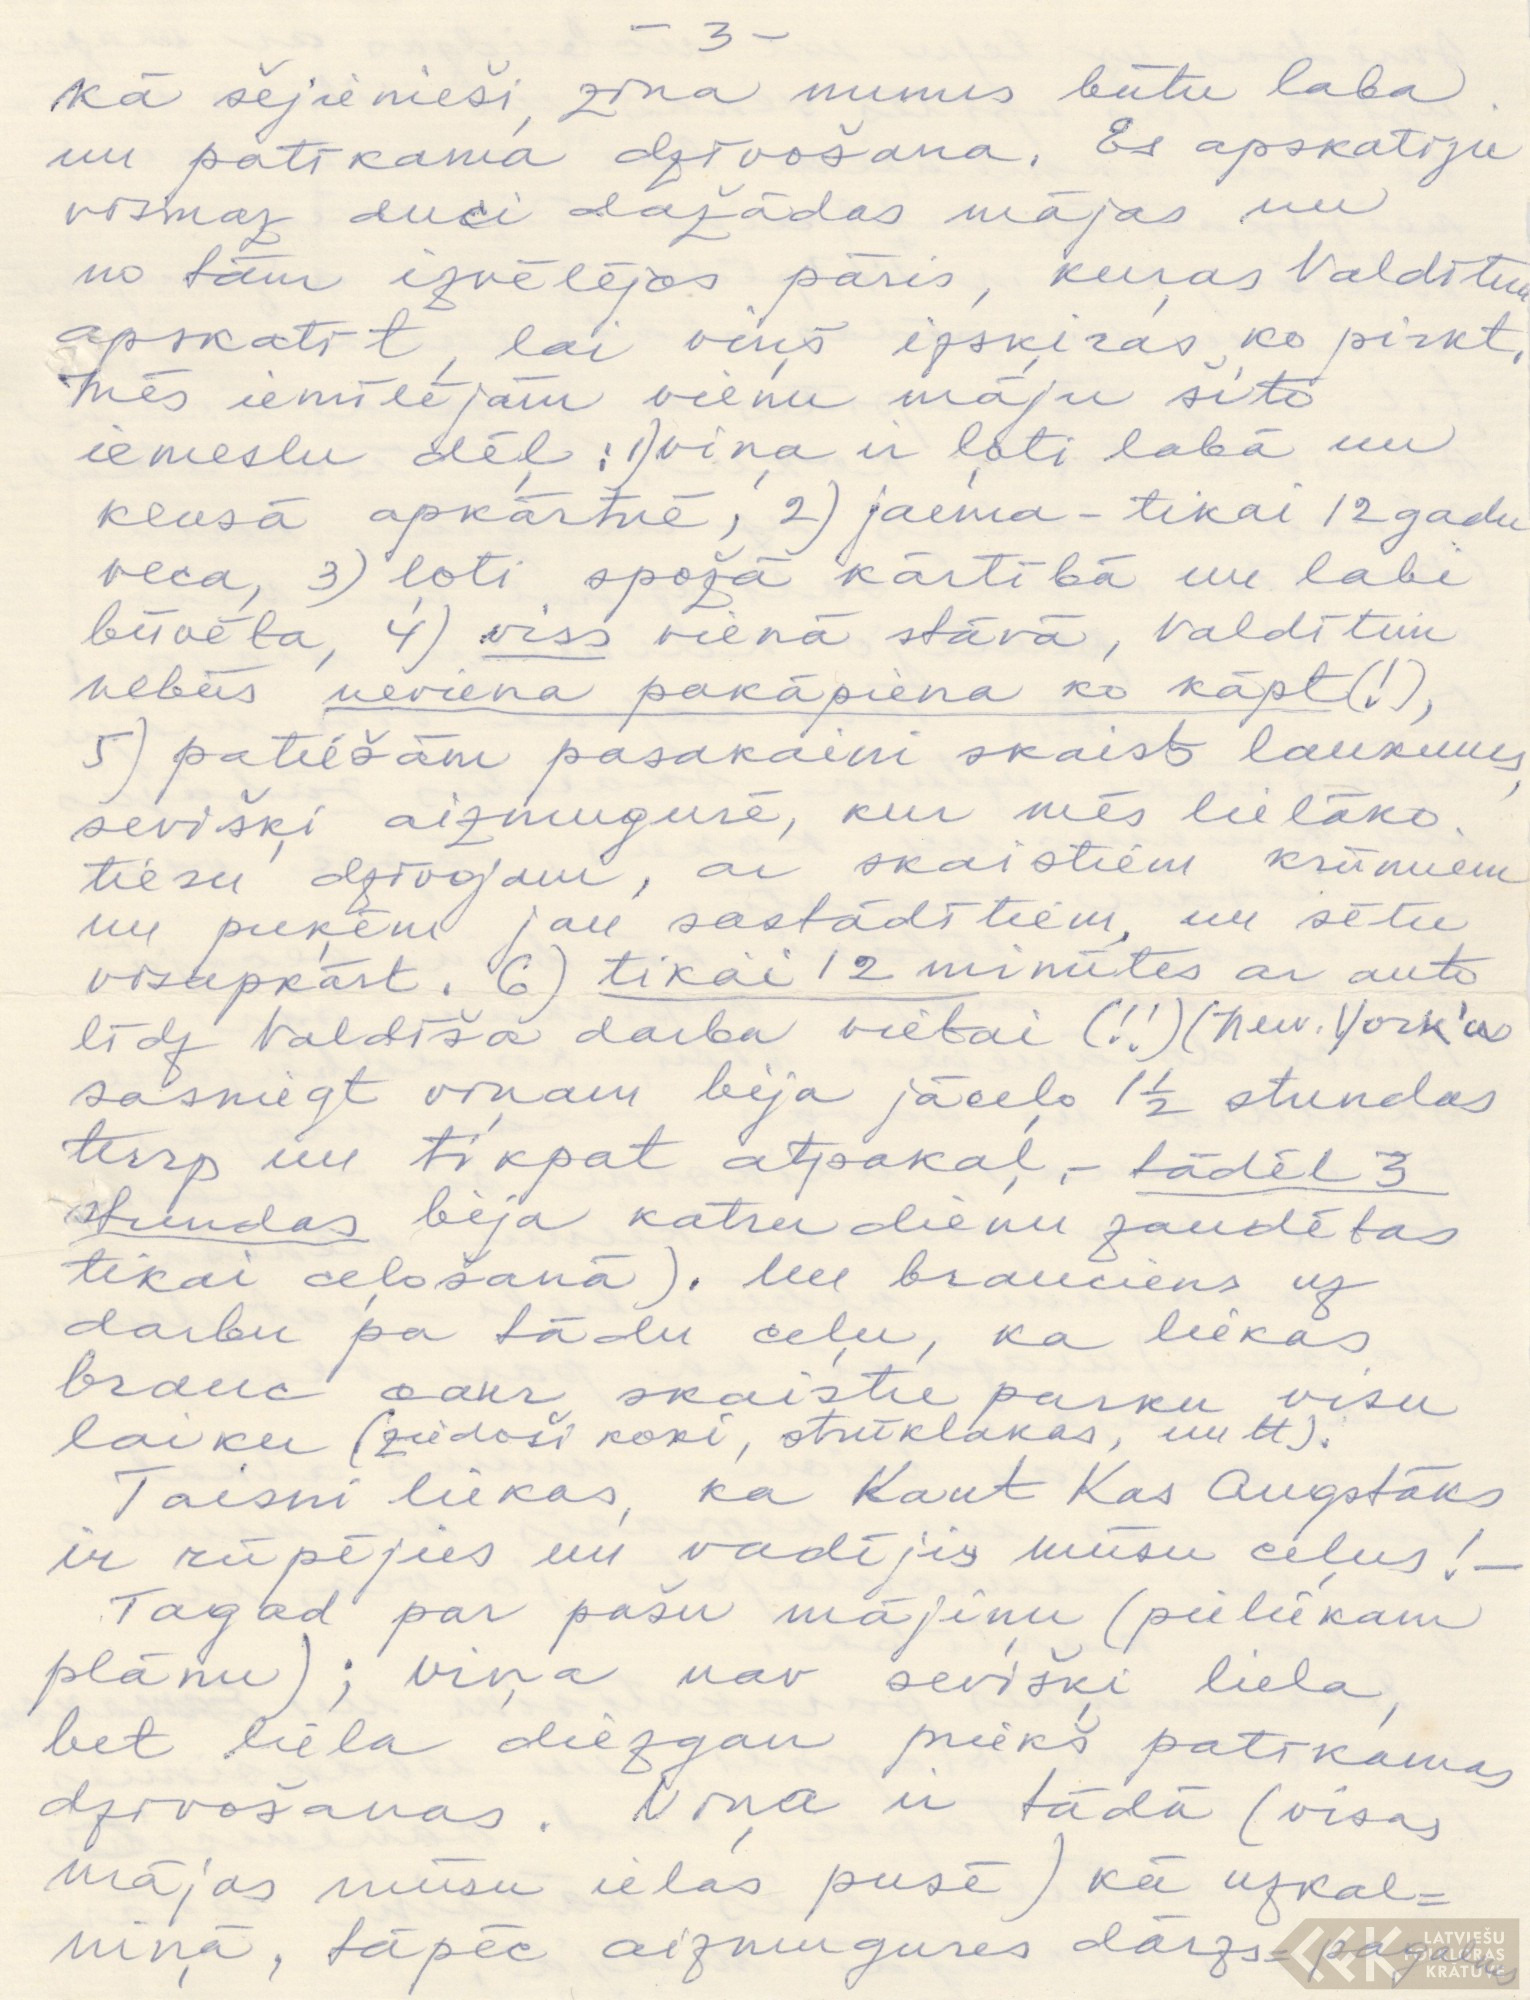 - 3 -
kā šējienieši, zina mums būtu laba
un patīkama dzīvošana. Es apskatīju
vismaz duci dažādas mājas un
no tām izvēlējos pāris, kuŗas Valdītim
apskatīt, lai viņš izšķiras, ko pirkt.
Mēs iemīlējām vienu māju šito
iemeslu dēļ: 1) viņa ir ļoti labā un
klusā apkārtnē, 2) jauna - tikai 12 gadu
veca, 3) ļoti spožā kārtībā un labi
būvēta, 4) viss vienā stāvā, Valdītim
nebūs neviena pakāpiena ko kāpt (!),
5) patiešām pasakaini skaists laukums,
sevišķi aizmugurē, kur mēs lielāko
tiesu dzīvojam, ar skaistiem krūmiem
un puķēm jau sastādītiem, un sētu
visapkārt. 6) tikai 12 minūtes ar auto
līdz Valdīša darba vietai (!!) (New. York'u
sasniegt viņam bija jāceļo 1½ stundas
turp un tikpat atpakaļ, - tādēl 3
stundas bija katru dienu zaudētas
tikai ceļošanā). Un brauciens uz
darbu pa tādu ceļu, ka liekas
brauc caur skaistu parku visu
laiku (ziedoši koki, strūklakas, un tt).
Taisni liekas, ka Kaut Kas Augstāks
ir rūpējies un vadījis mūsu ceļus! -
Tagad par pašu mājiņu (pielikam
plānu); viņa nav sevišķi liela,
bet liela diezgan priekš patīkamas
dzīvošanas. Viņa ir tādā (visas
mājas mūsu ielas pusē) kā uzkal=
niņā, tāpēc aizmugures dārzs=pagalms
LATVIEŠU
FOLKLORAS
KRĀTUVE